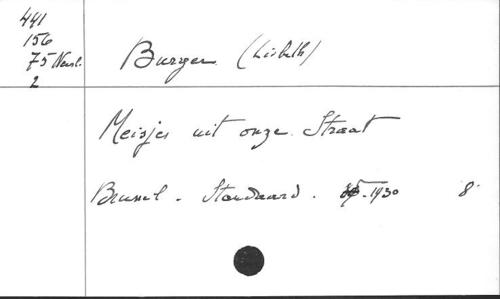 441
156
75 Neerl.
2
Burger (Lisbeth)
Meisjes uit onze Straat
Brussel. Standaard. 1930 8°